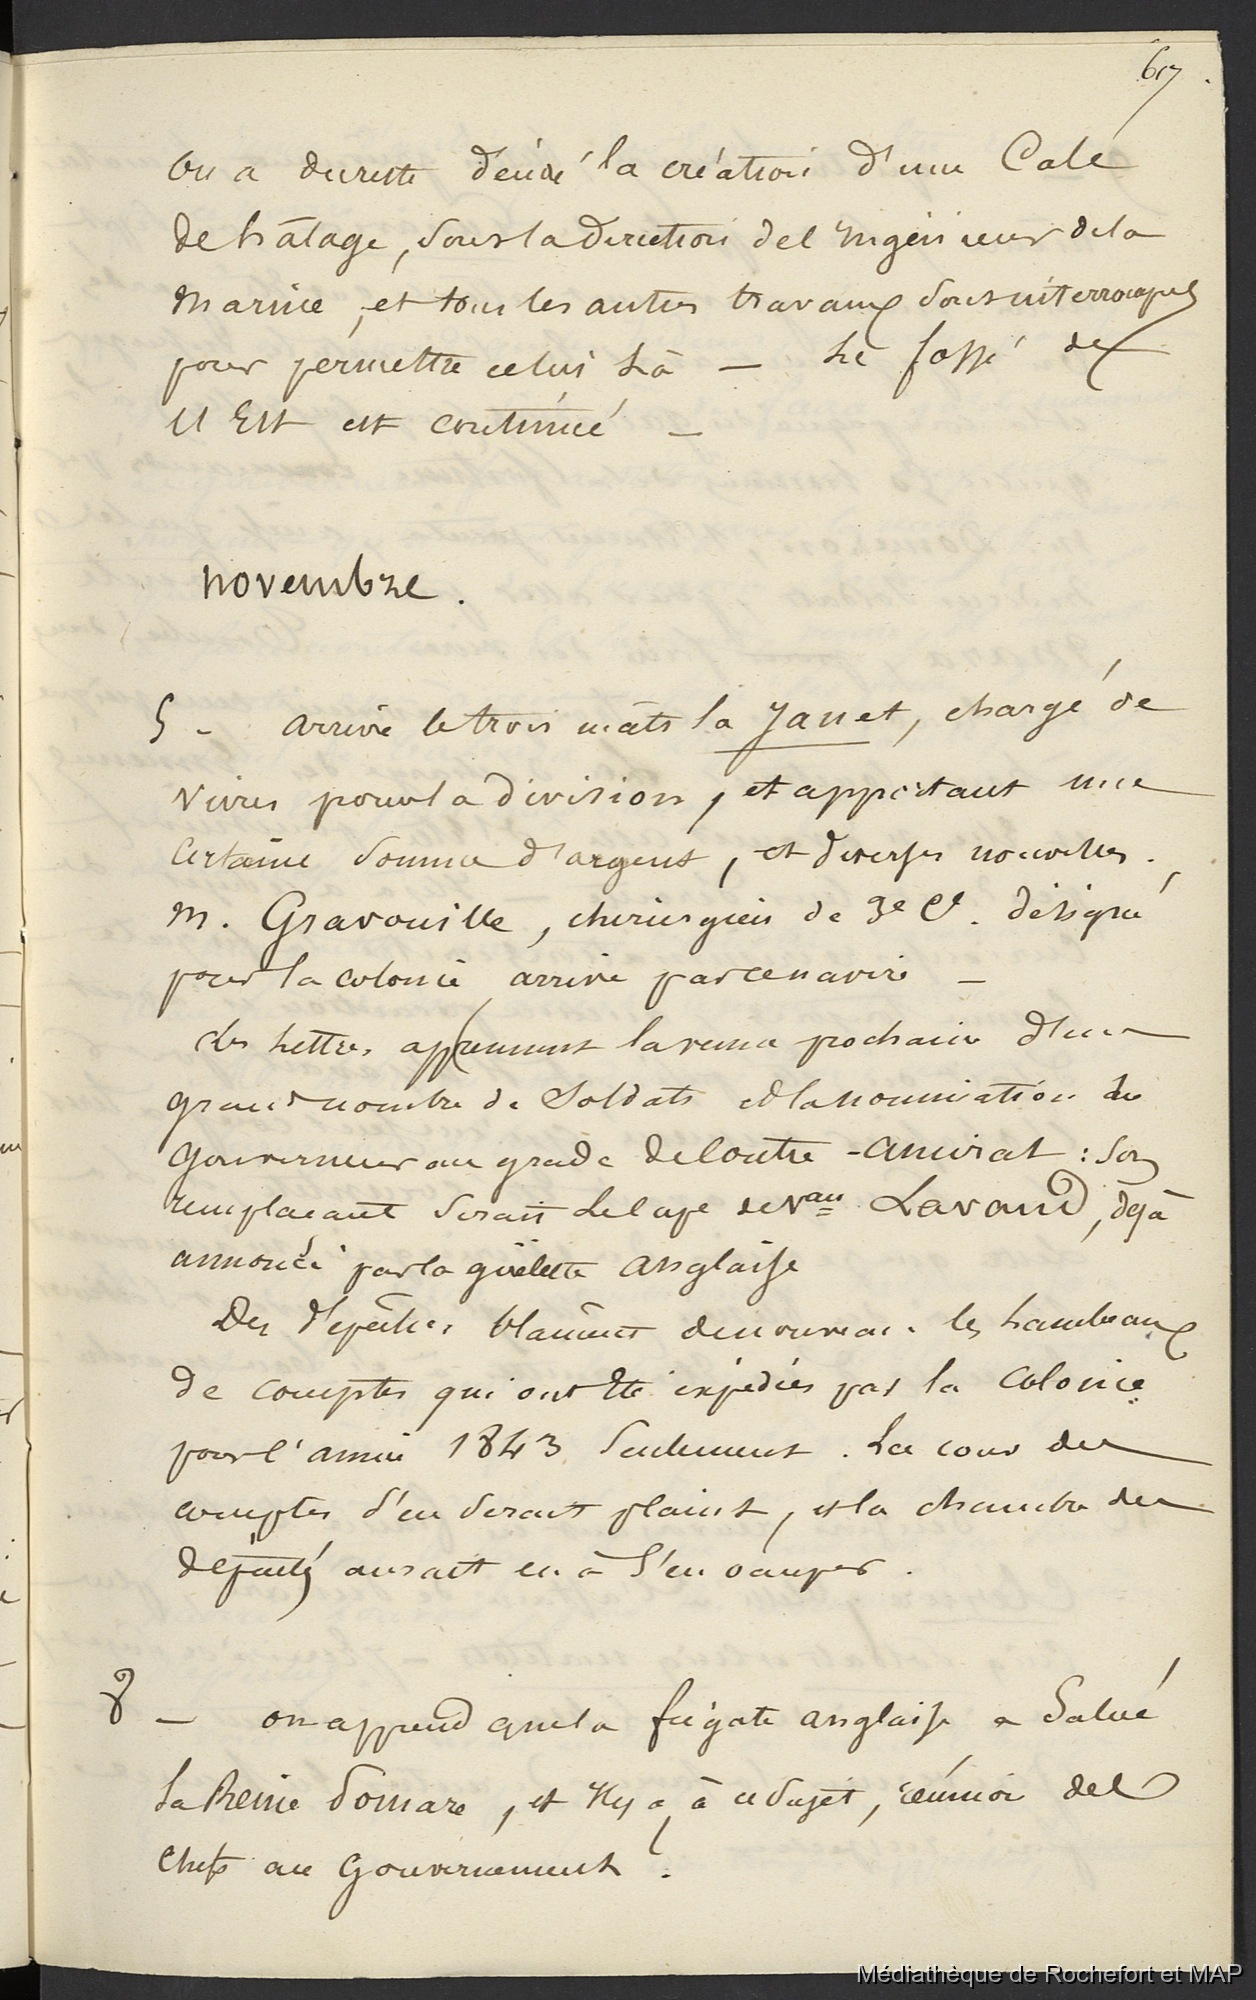 67.
On a du reste décidé la création d'une Cale
de hâlage, sous la direction de l'Ingénieur de la
marine, et tous les autres travaux sont interrompus
pour permettre celui là — Le fossé de
l'Est est continué —
novembre.
5 - arrive le trois mâts la Janet, chargé de
vivres pour la division, et apportant une
certaine somme d'argent, et diverses nouvelles.
M. Gravouille, chirurgien de 3e Cl. désigné
pour la colonie arrive par ce navire —
des lettres apprennent la venue prochaine d'un
grand nombre de soldats et la nomination du
gouverneur au grade de Contre-amiral : son
remplaçant serait le Cape de Vau Lavaud, déjà
annoncé par la goëlette anglaise
Des dépêches blâment de nouveau les lambeaux
de comptes qui ont été expédiés par la Colonie
pour l'année 1843 seulement. La cour des
comptes s'en serait plaint, et la chambre des
députés aurait eu à s'en occuper.
8 — on apprend que la frégate anglaise a salué
la Reine Pomare, et il y a, à ce sujet, réunion des
Chefs au Gouvernement.
Médiathèque de Rochefort et MAP